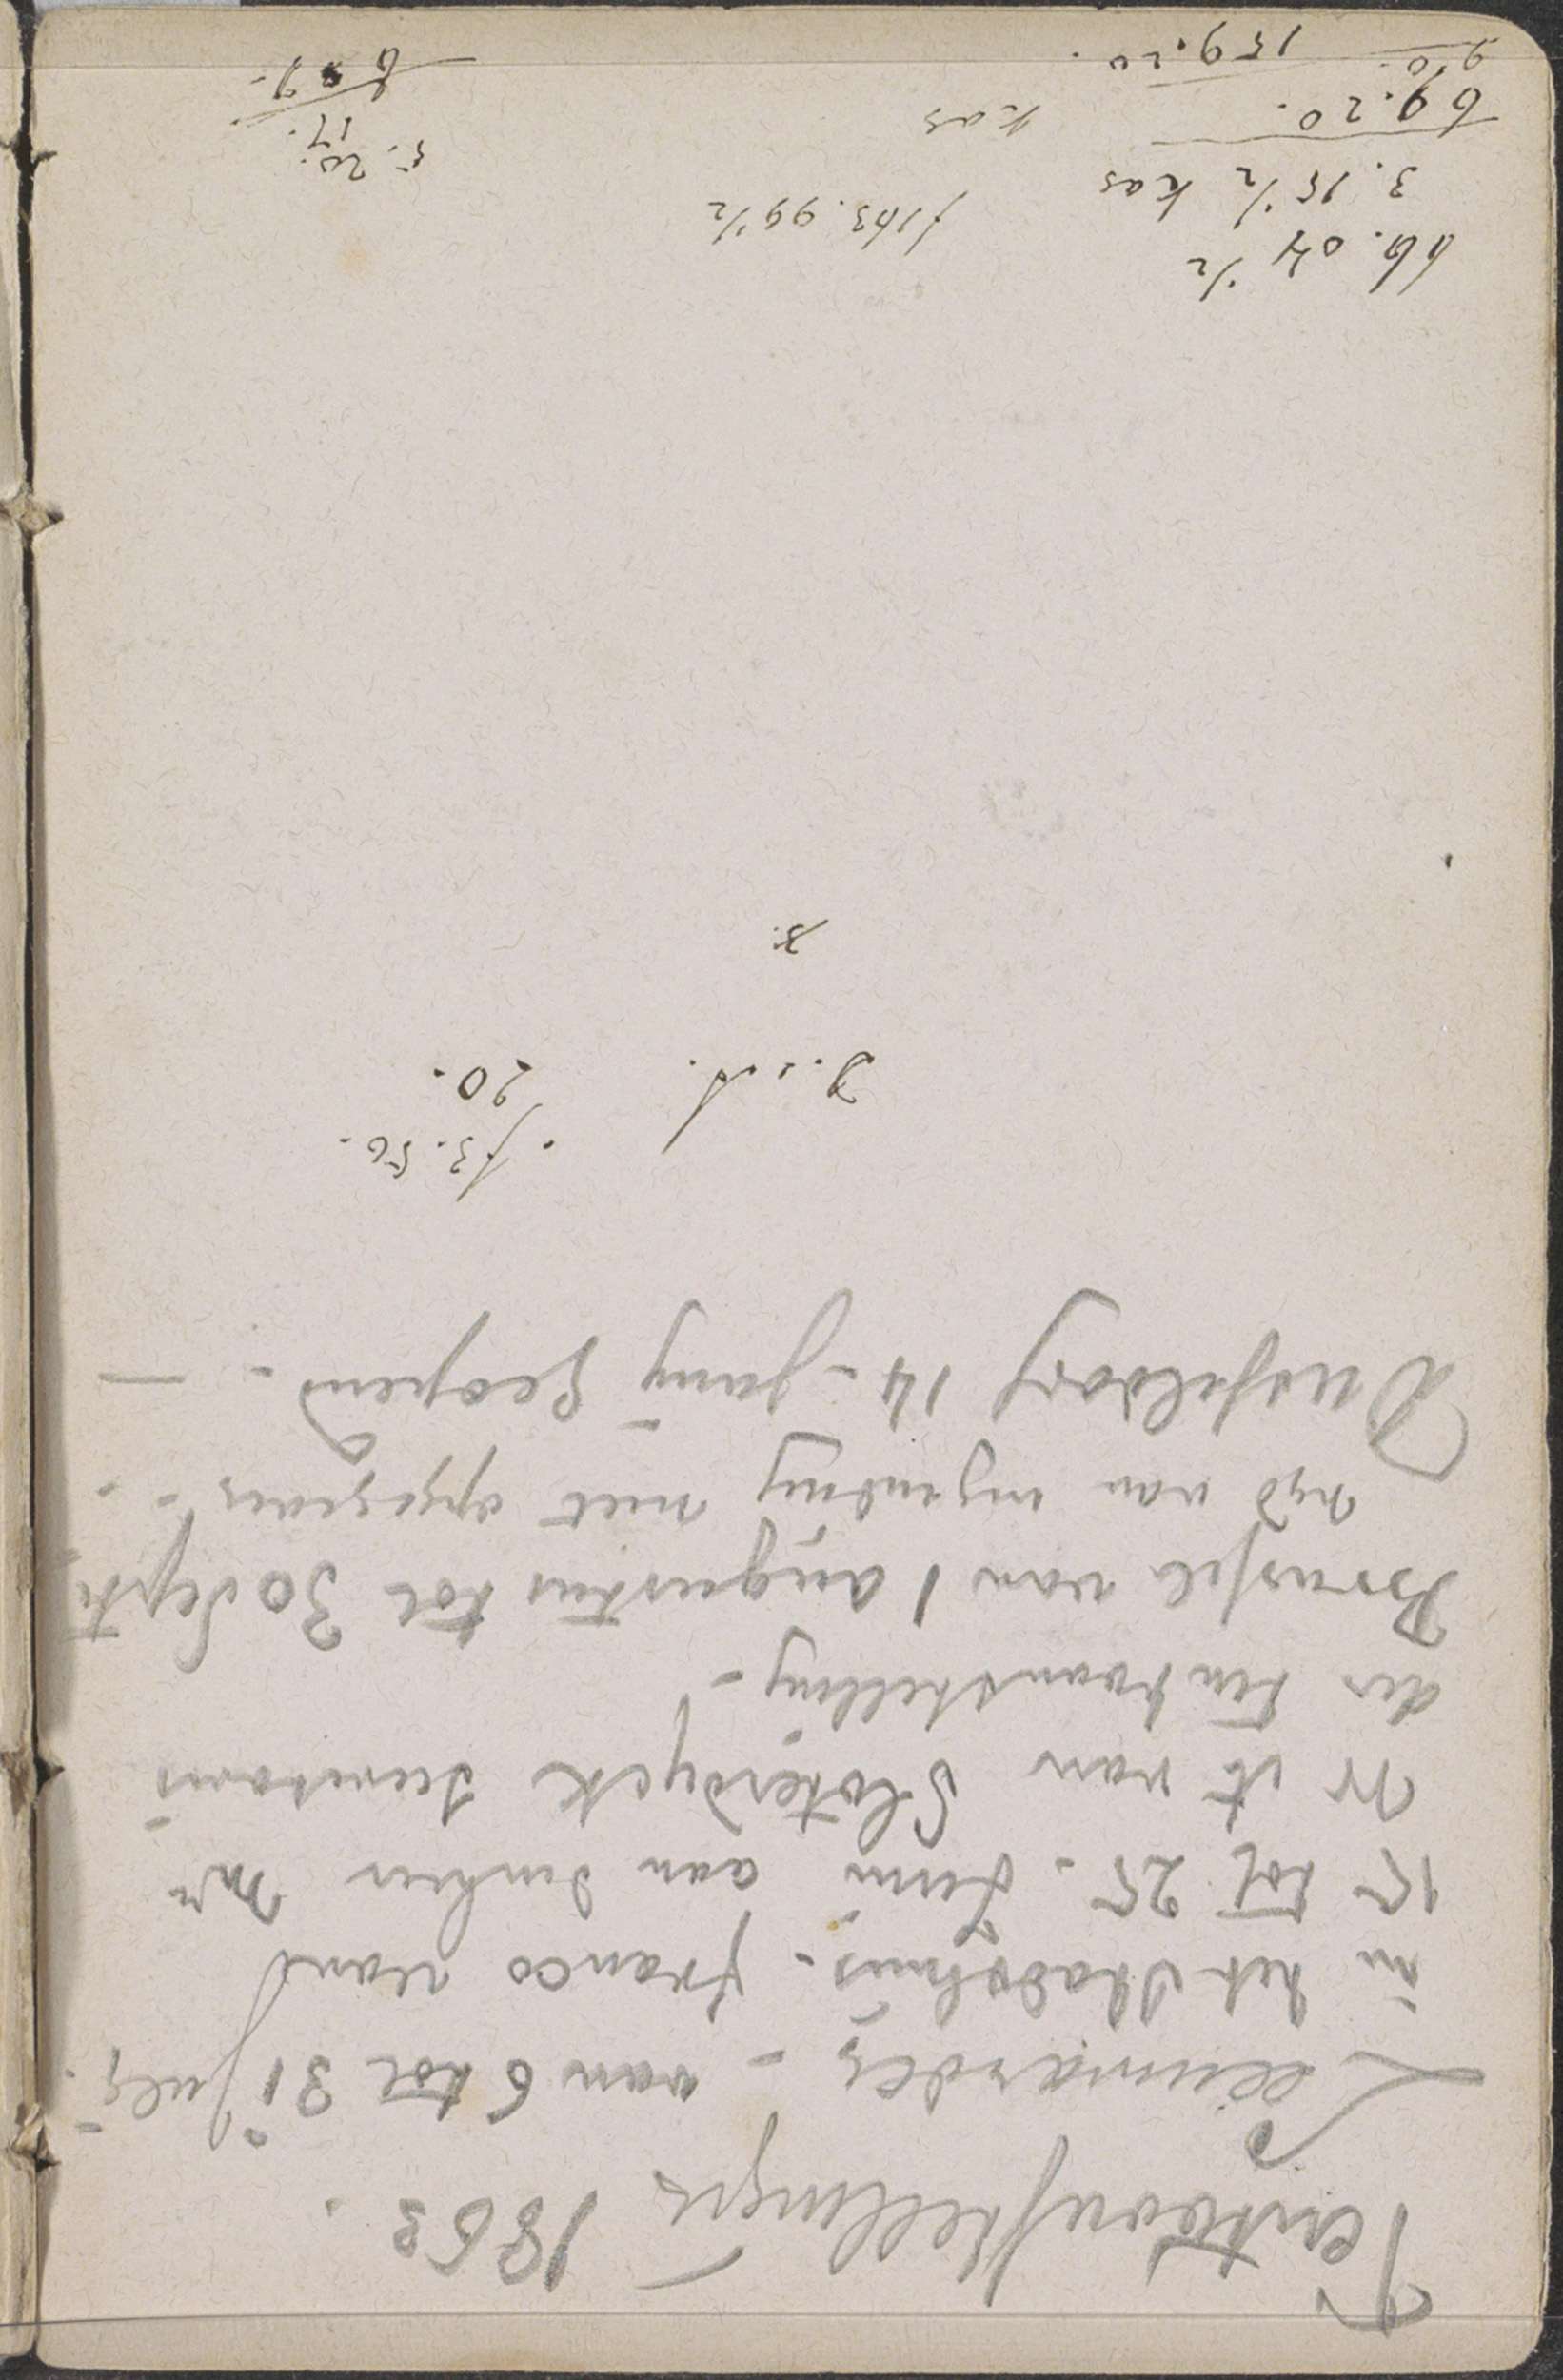 Tentoonstellingen 1863.
Leeuwarden - van 6 tot 31 july.
in het Stadshuis. franco
15 tot 25 - Juni aan den heer Mr
W it van Sloterdyck Secretaris
der Tentoonstelling -
Brussel van 1 augustus tot 30 Septr
tyd van inzending niet opgegeven -
Dusseldorf 14 - Juny geopend. -
f3.50.
20.
66.04 1/2
3.15 1/2 kas
69.20.
90.
159.20.
f163.99 1/2
kas
5.20.
17.